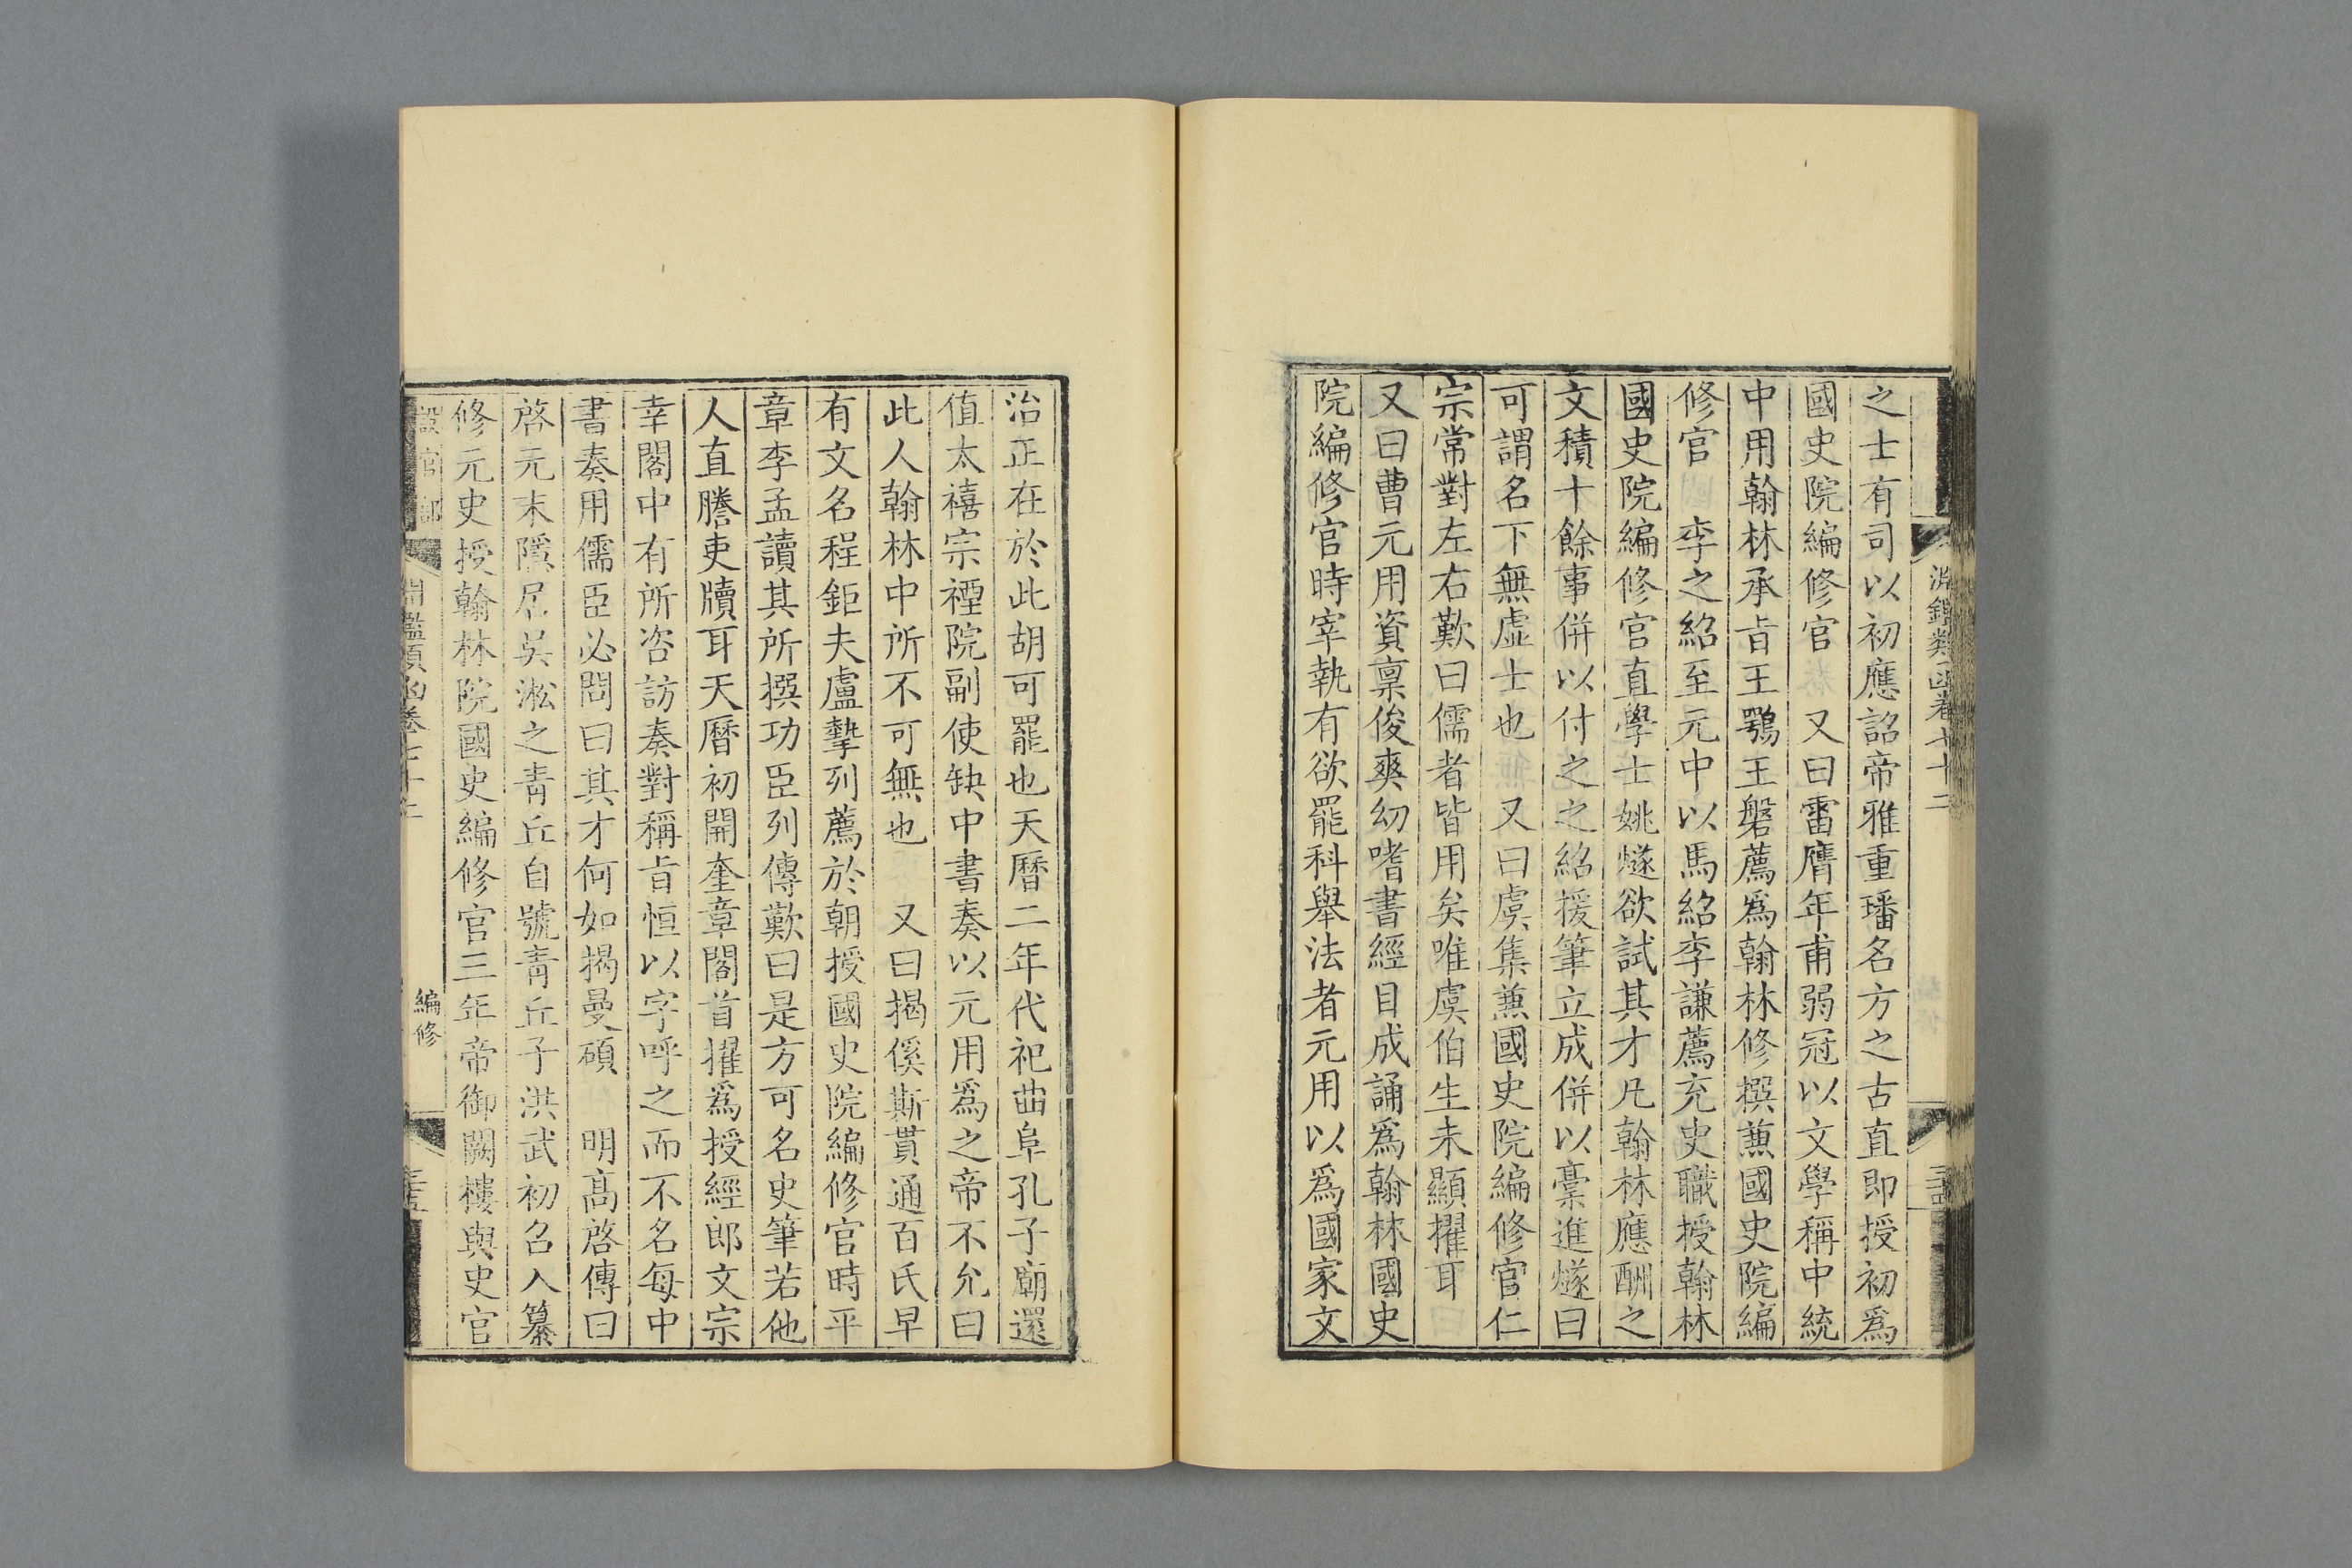 淵鑑類函卷七十二
之士有司以初應詔帝雅重璠名方之古直即授初爲
國史院編修官　又曰雷膺年甫弱冠以文學稱中統
中用翰林承㫖王鶚王磐薦爲翰林修撰蒹國史院編
修官　李之紹至元中以馬紹李謙薦充史職授翰林
國史院編修官直學士姚燧欲試其才凡翰林應酬之
文積十餘事併以付之之紹援筆立成併以槀進燧曰
可謂名下無虛士也　又曰虞集蒹國史院編修官仁
宗常對左右歎曰儒者皆用矣唯虞伯生未顯擢耳
又曰曹元用資禀俊爽幼嗜書經目成誦爲翰林國史
院編修官時宰執有欲罷科舉法者元用以爲國家文
治正在於此胡可罷也天曆二年代祀曲阜孔子廟還
值太禧宗禋院副使缺中書奏以元用爲之帝不允曰
此人翰林中所不可無也　又曰揭傒斯貫通百氏早
有文名程鉅夫盧摯列薦於朝授國史院編修官時平
章李孟讀其所撰功臣列傳歎曰是方可名史筆若他
人直謄吏牘耳天曆初開奎章閣首擢爲授經郎文宗
幸閣中有所咨訪奏對稱㫖恒以字呼之而不名每中
書奏用儒臣必問曰其才何如揭曼碩　明高啓傳曰
啓元末隱居吳淞之青丘自號青丘子洪武初召入纂
修元史授翰林院國史編修官三年帝御闕樓與史官
設官部
淵鑑類函卷七十二
編修